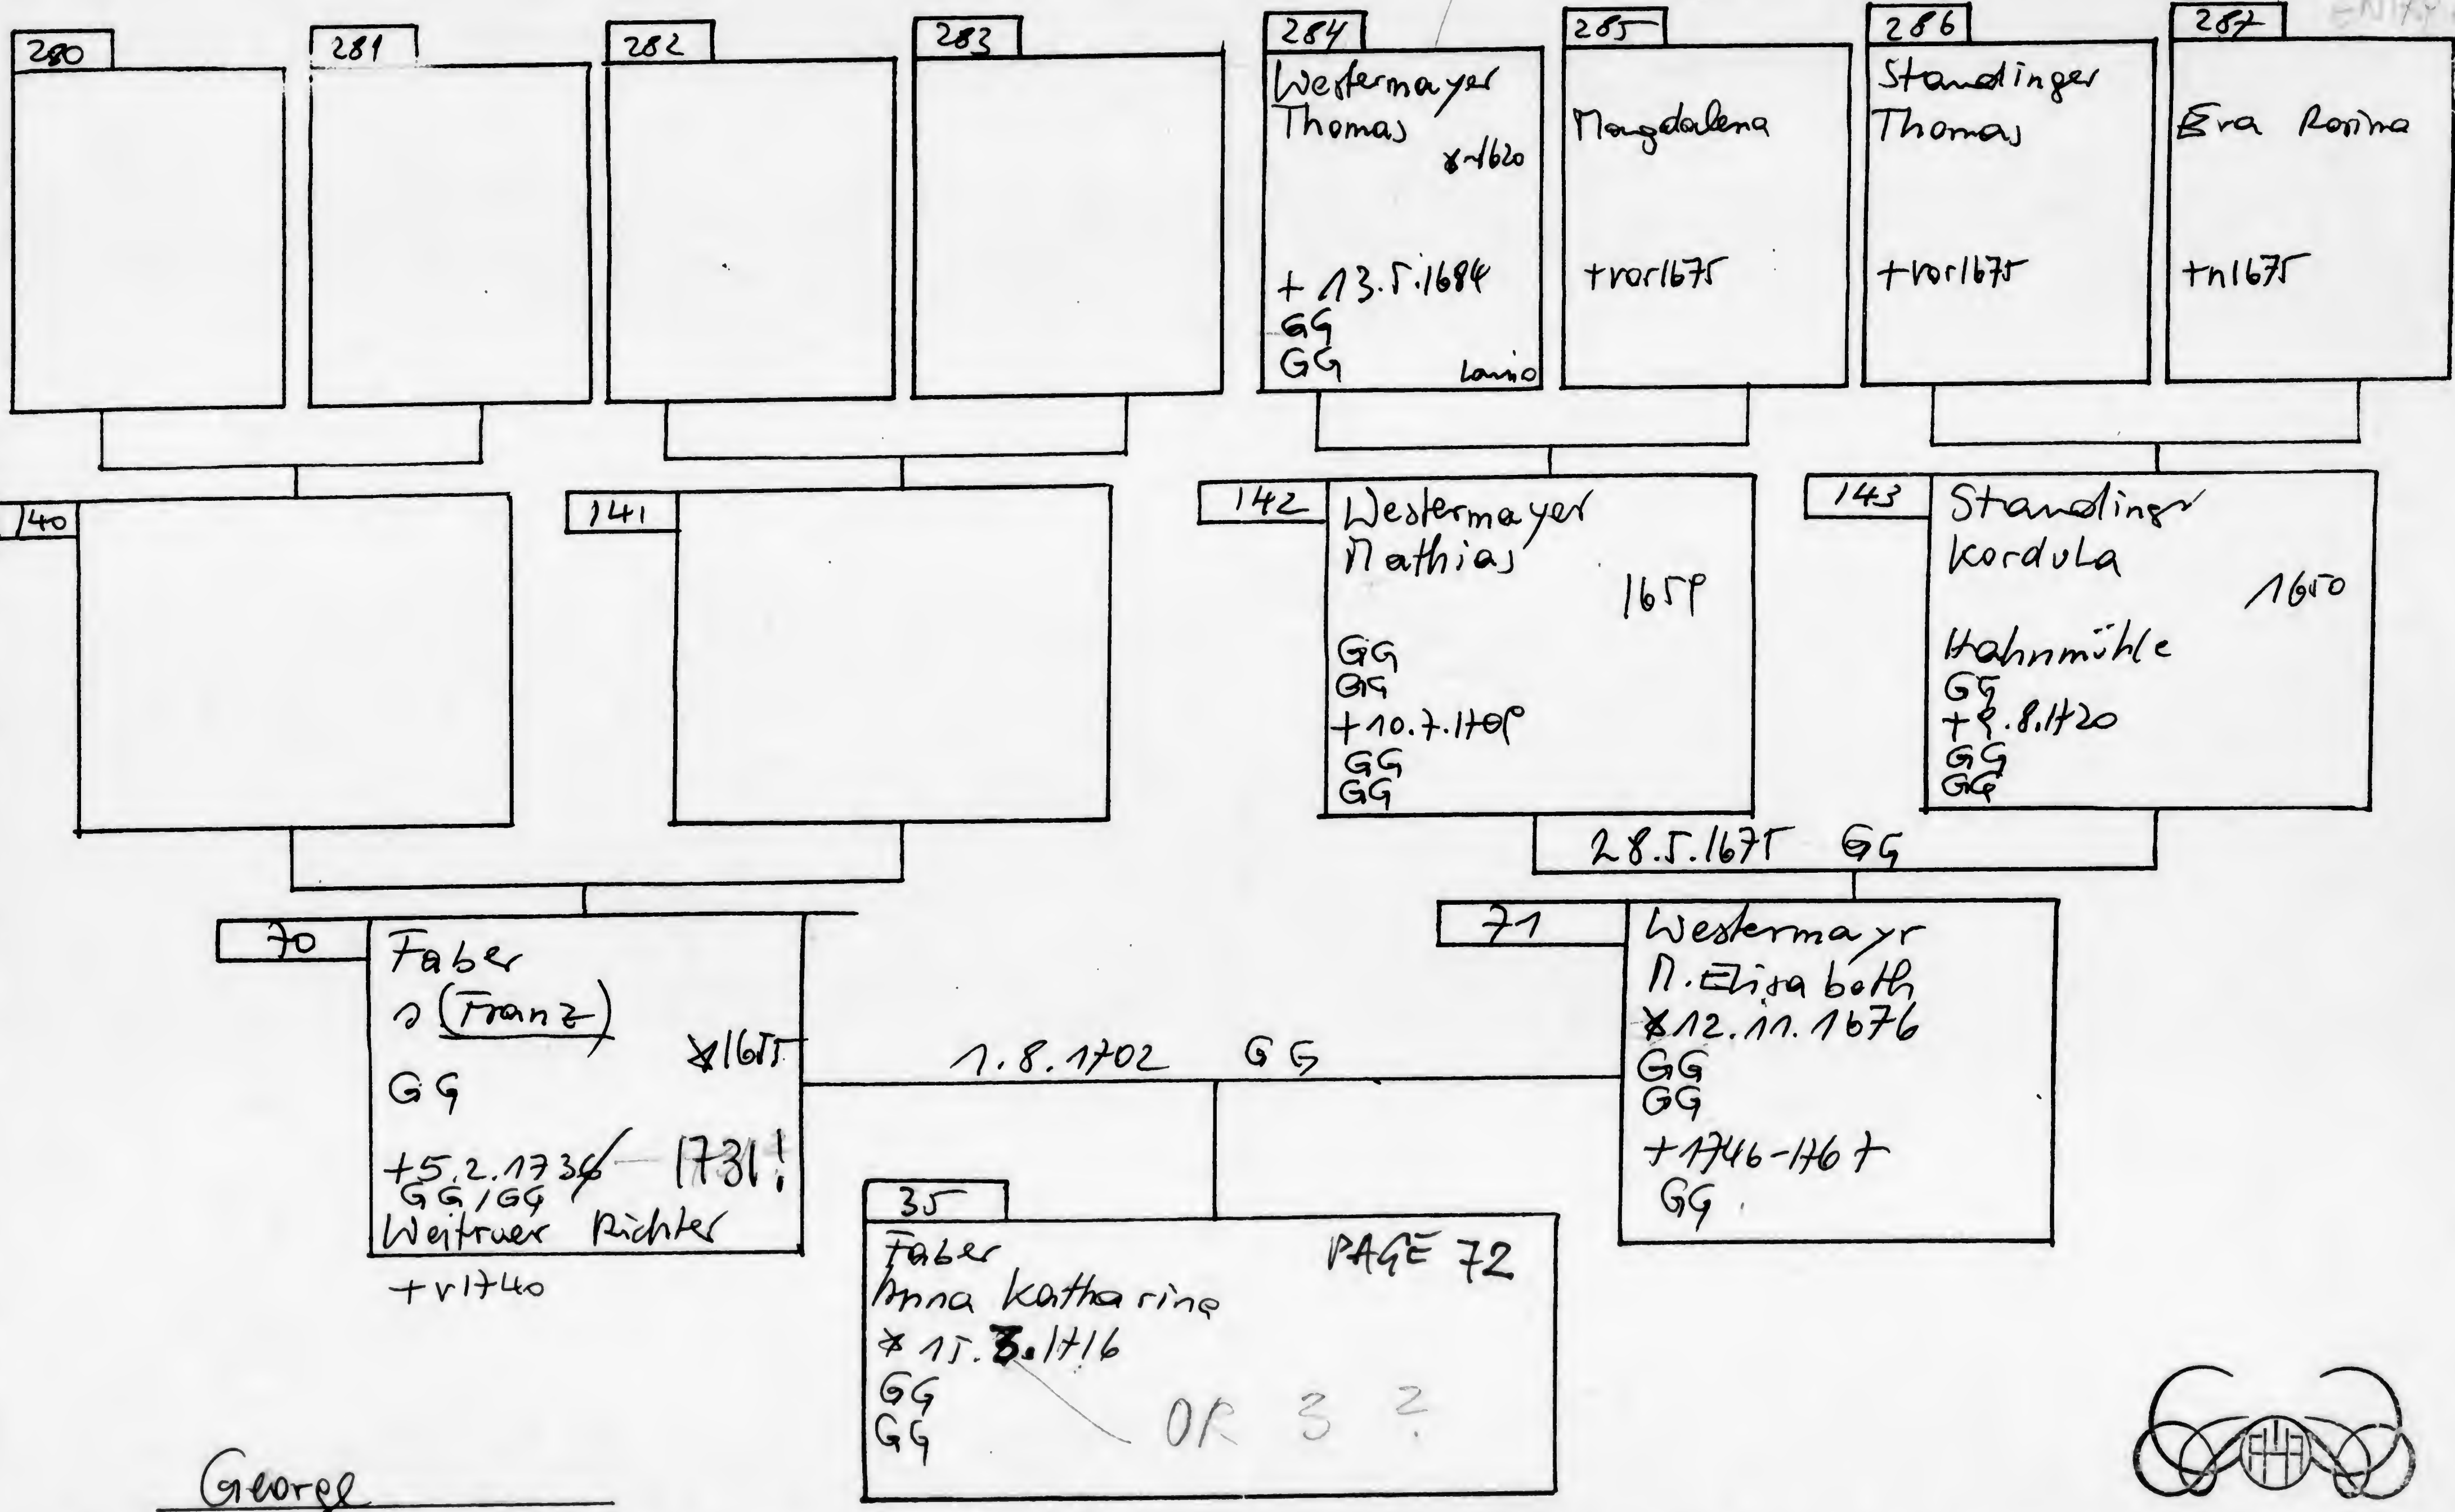 280
281
282
283
284
Westermayer
Thomas
*~1620
+ 13.5.1684
GG
GG
285
Magdalena
+vor1675
286
Staudinger
Thomas
+vor1675
287
Eva Rosina
+n1675
140
141
142
Westermayer
Mathias
1659
GG
GG
+10.7.1709
GG
GG
143
Staudinger
Kordula
1650
Hahnmühle
GG
+9.8.1720
GG
GG
28.5.1675 GG
70
Faber
(Franz)
*1655
GG
+5.2.1736 1731!
GG/GG
Weitraer Richter
+v1740
1.8.1702 GG
71
Westermayr
M. Elisabeth
*12.11.1676
GG
GG
+1746-1767
GG
35
Faber PAGE 72
Anna Katharina
* 15.3.1716
GG
GG
OR 3 ?
George